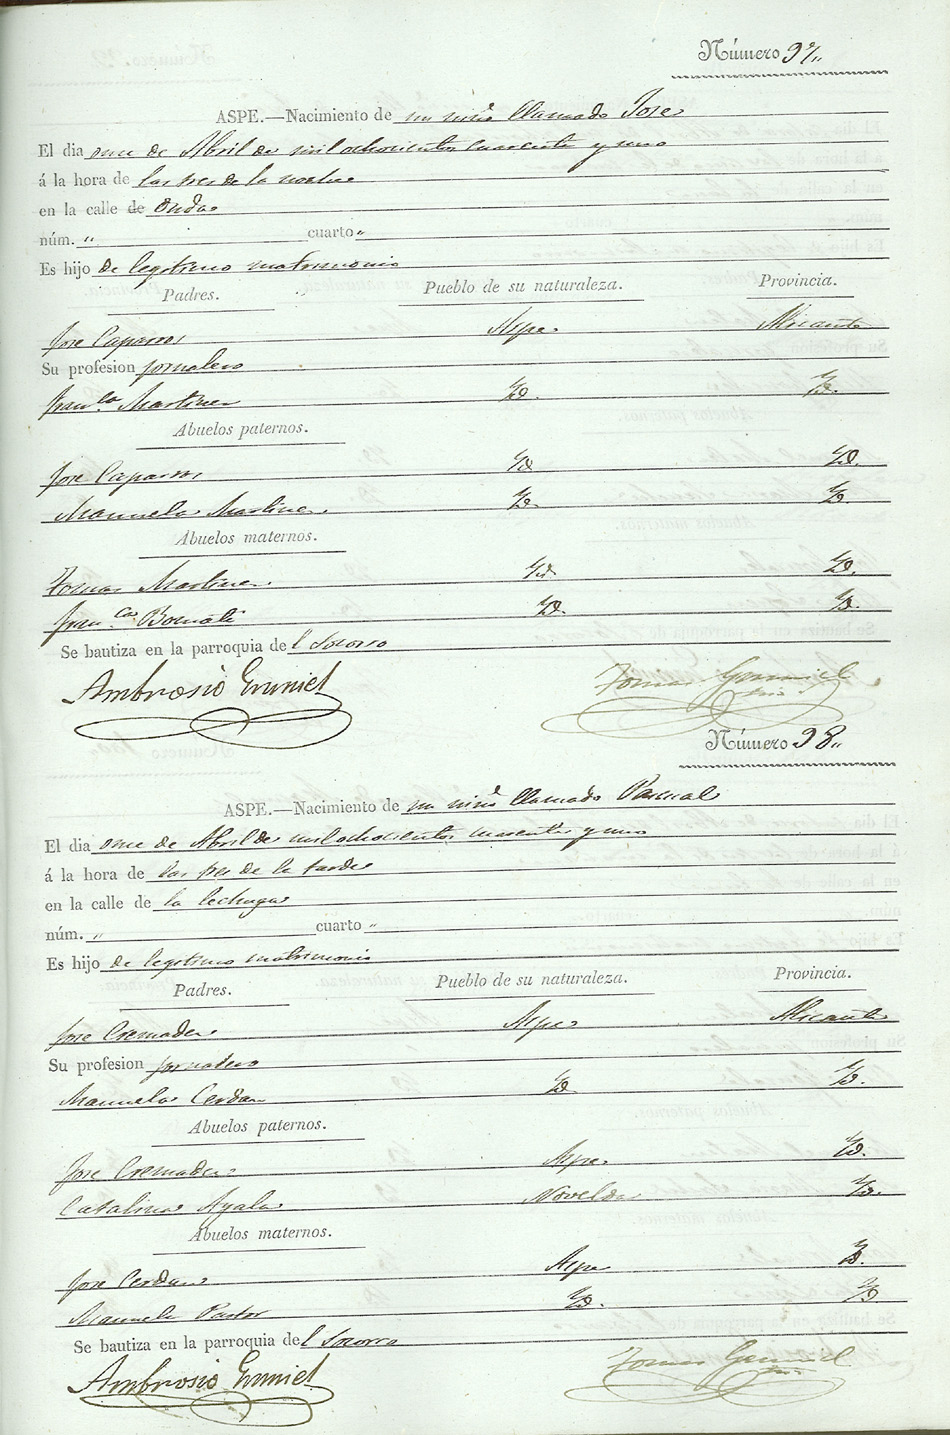 Número 97"
ASPE.—Nacimiento de un niño llamado Jose
El dia once de Abril de mil ochocientos cuarenta y uno
á la hora de las tres de la noche
en la calle de Ondas
núm. " cuarto "
Es hijo de legitimo matrimonio
Padres. Pueblo de su naturaleza. Provincia.
Jose Caparros Aspe Alicante
Su profesion jornalero
Fran.ca Martinez Yd. Yd.
Abuelos paternos.
Jose Caparros Yd Yd.
Manuela Martinez Yd. Yd.
Abuelos maternos.
Tomas Martinez Yd. Yd.
Fran.ca Yd. Yd.
Se bautiza en la parroquia del Socorro
Ambrosio Tomas
Número 98"
ASPE.—Nacimiento de un niño llamado Pascual
El dia once de Abril de mil ochocientos cuarenta y uno
á la hora de las tres de la tarde
en la calle de la lechuga
núm. " cuarto "
Es hijo de legitimo matrimonio
Padres. Pueblo de su naturaleza. Provincia.
Jose Cremades Aspe Alicante
Su profesion jornalero
Manuela Cerdan Yd Yd.
Abuelos paternos.
Jose Cremades Aspe Yd.
Catalina Ayala Novelda Yd.
Abuelos maternos.
Jose Cerdan Aspe Yd.
Manuela Pastor Yd. Yd
Se bautiza en la parroquia del Socorro
Ambrosio Tomas